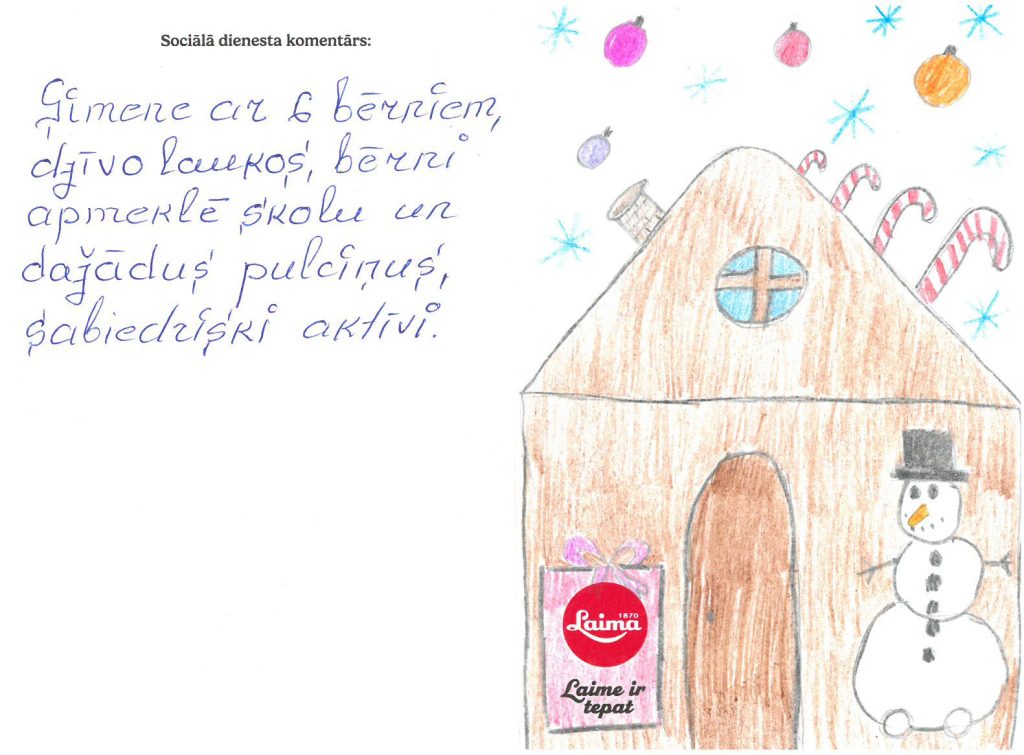 Sociālā dienesta komentārs:
Ģimene ar 6 bērniem,
dzīvo laukos, bērni
apmeklē skolu un
dažādus pulciņus,
sabiedriski aktīvi.
1870
Laima
Laime ir
tepat